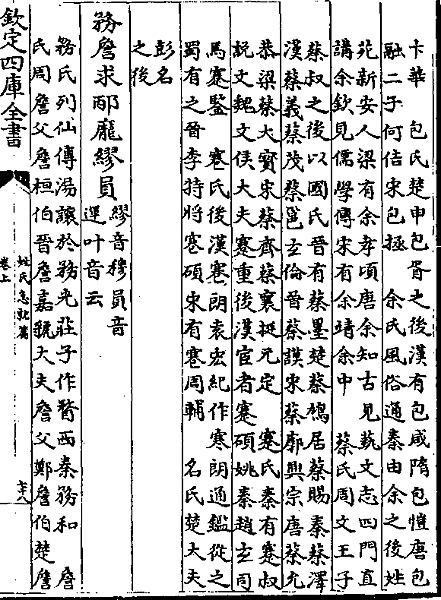 卞華　包氏楚申包胥之後漢有包咸隋包愷唐包
融二子何佶宋包拯　余氏風俗通秦由余之後姓
苑新安人梁有余孝頃唐余知古見藝文志四門直
講余欽見儒學傳宋有余靖余中　蔡氏周文王子
蔡叔之後以國氏晉有蔡墨楚蔡鳩居蔡賜秦蔡澤
漢蔡義蔡茂蔡邕玄倫晉蔡謨宋蔡廓興宗唐蔡允
恭梁蔡大寳宋蔡齊蔡襄挺元定　蹇氏秦有蹇叔
説文魏文侯大夫蹇重後漢宦者蹇碩姚秦趙玄司
馬蹇鑒　寋氏後漢寋朗袁宏紀作寒朗通鑑從之
蜀有之晉李持將寋碩宋有寋周輔　名氏楚大夫
彭名
之後
務詹求邴龐繆員繆音穆員音
運叶音云
務氏列仙傳湯讓於務光莊子作瞀西秦務和　詹
氏周詹父詹桓伯晉詹嘉虢大夫詹父鄭詹伯楚詹
欽定四庫全書
姓氏急就篇
卷上
六十八